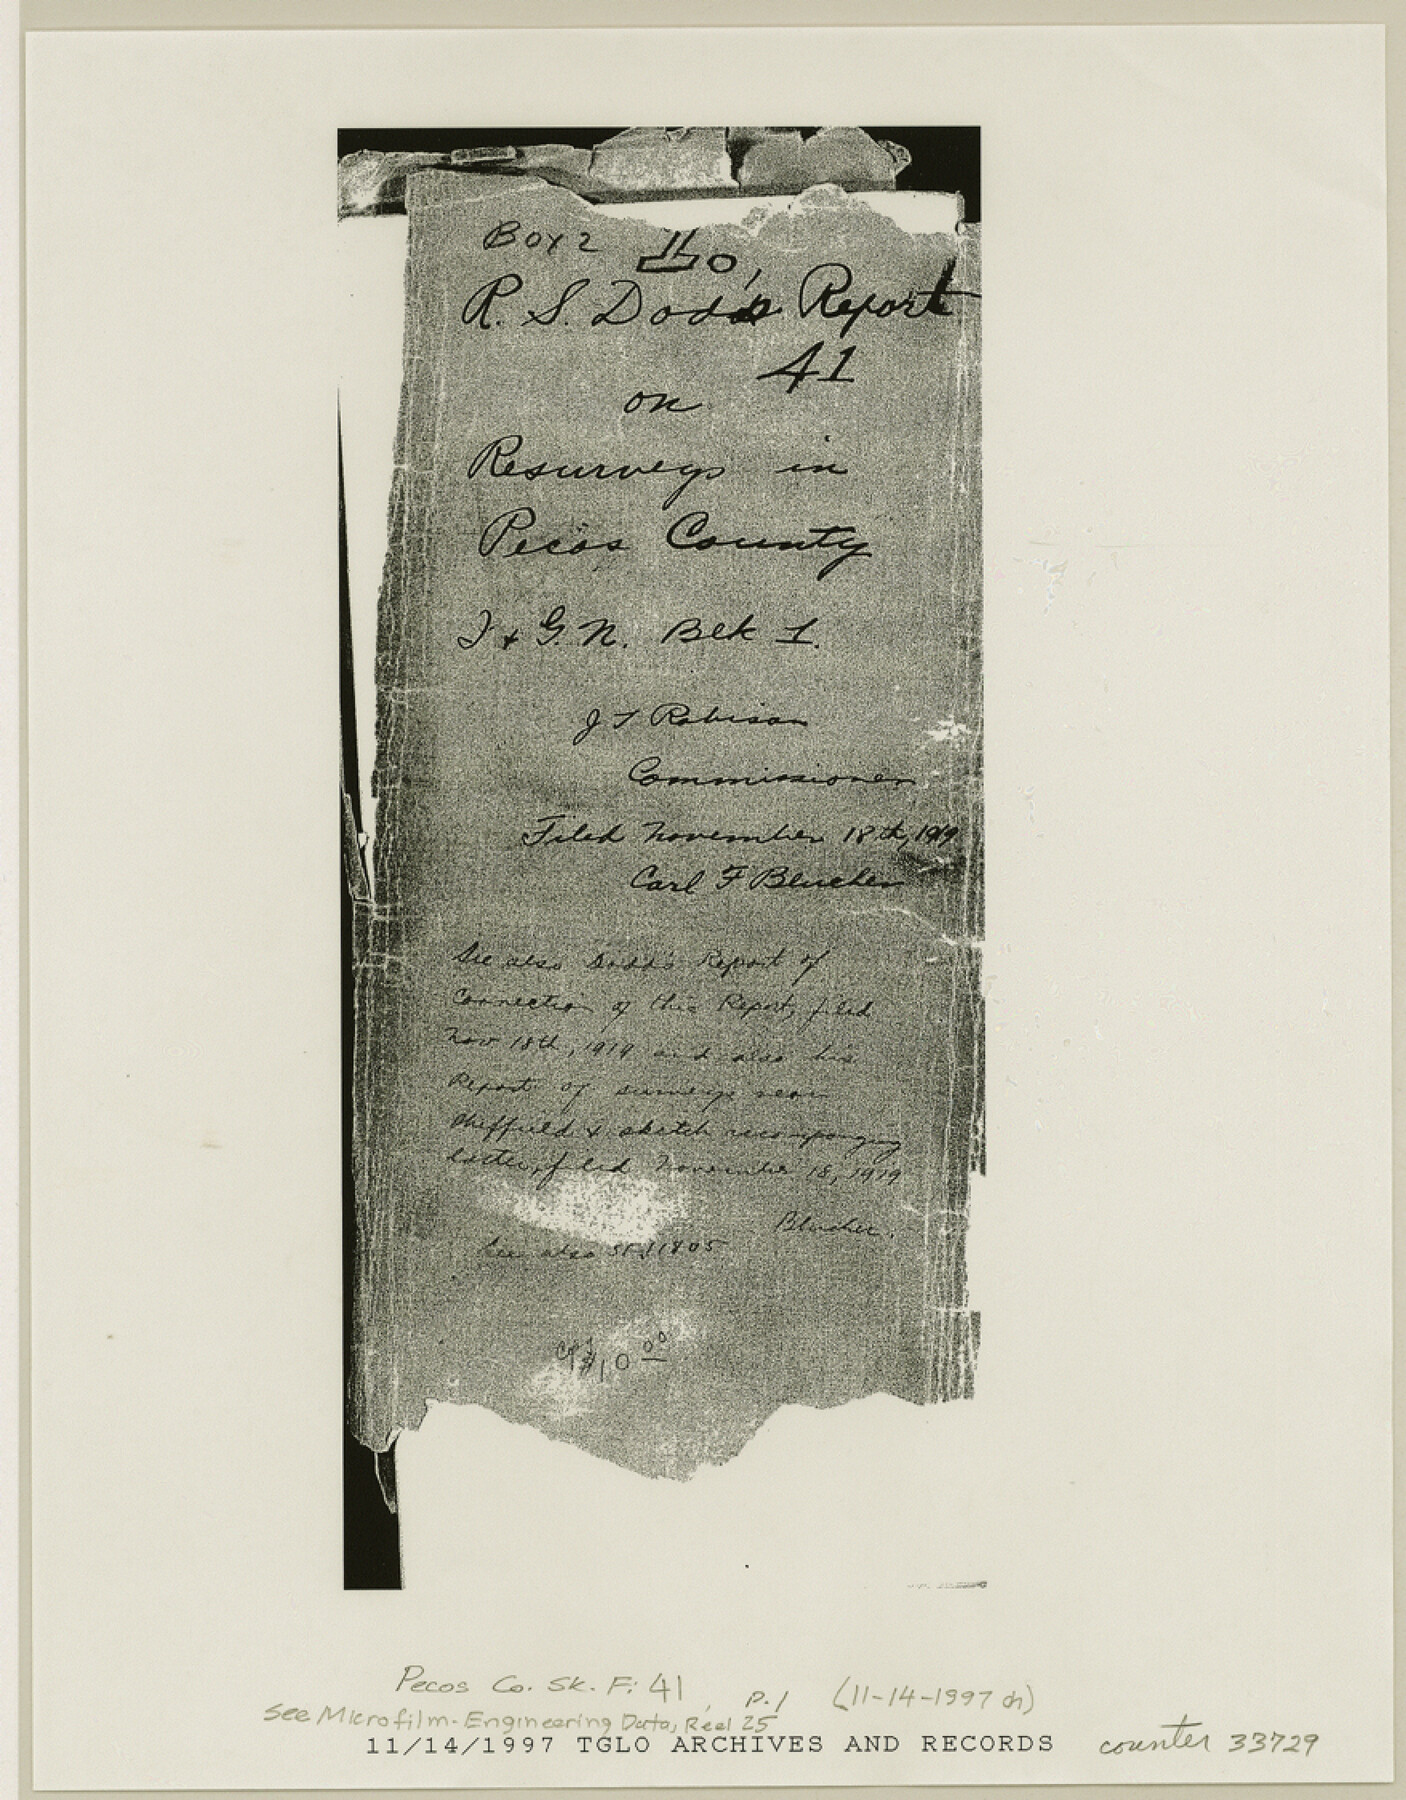 Box 2
R. S. Dodd's Report
41
on
Resurveys in
Pecos County
I & G. N. Blk 1.
J T Robison
Commissioner
Filed November 18th, 1919
Carl F Blucher
See also Dodd's Report of
Connection of this Report, filed
Nov 18th, 1919 and also his
Report of surveys near
Sheffield & sketch
latter, filed November 18, 1919
Blucher.
See also
$10 00
Pecos Co. Sk. F. 41, p. 1 (11-14-1997 dh)
See Microfilm-Engineering Data, Reel 25
11/14/1997 TGLO ARCHIVES AND RECORDS
counter 33729